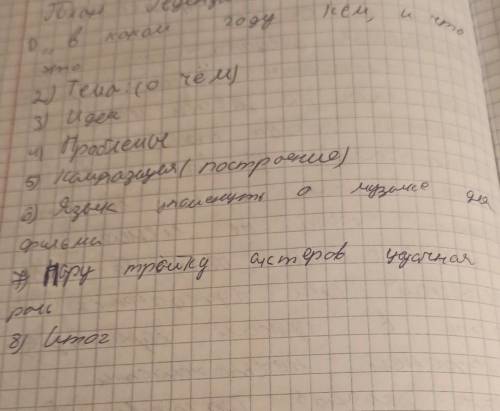 План Реценз
1) в каком году кем, и что
это
2) Тема: (о чём)
3) Идея
4) Проблемы
5) Компазиция (построение)
6) Язык упомянуть о музыке для
фильма
7) Пару тройку актеров удачная
роль
8) Итог